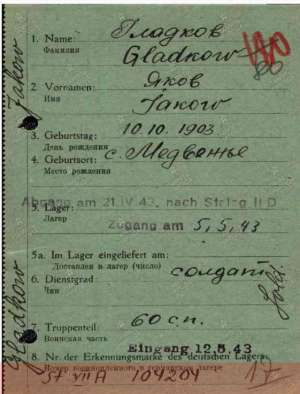 1. Name: Гладков
Фамилия Gladkow
2. Vornamen: Яков
Имя Jakow
3. Geburtstag: 10.10.1903
День рождения
4. Geburtsort: с. Медвежье
Место рождения
Abgang am 21. IV 43. nach Stalag II D
5. Lager:
Лагер
Zugang am 5.5.43
5a. Im Lager eingeliefert am:
Доставлен в лагер (число)
6. Dienstgrad: солдат
Чин Sold.
7. Truppenteil: 60 с.п.
Воинская часть
Eingang 12.5.43
8. Nr. der Erkennungsmarke des deutschen Lagers
St VII A 104204 17
Jakow
Gladkow